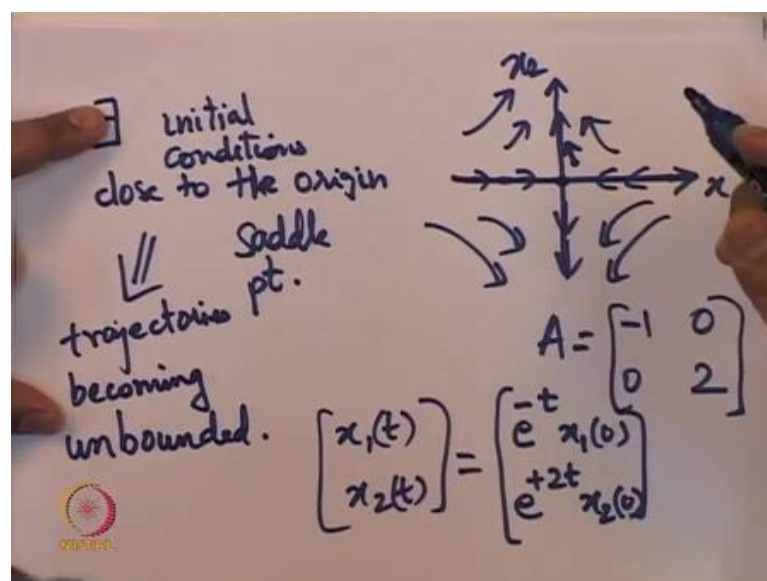 ∃ initial
conditions
close to the origin
⇓ saddle
pt.
trajectories
becoming
unbounded.
x₂
x
A = [-1 0
0 2]
[x₁(t)
x₂(t)] = [e^-t x₁(0)
e^+2t x₂(0)]
NPTEL